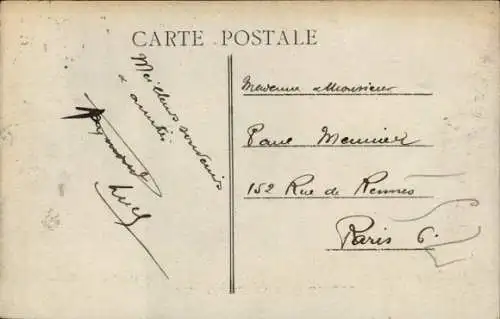 CARTE POSTALE
Meilleurs souvenirs
& amitiés
Raymond
Madame & Monsieur
Paul Meunier
152 Rue de Rennes
Paris 6.